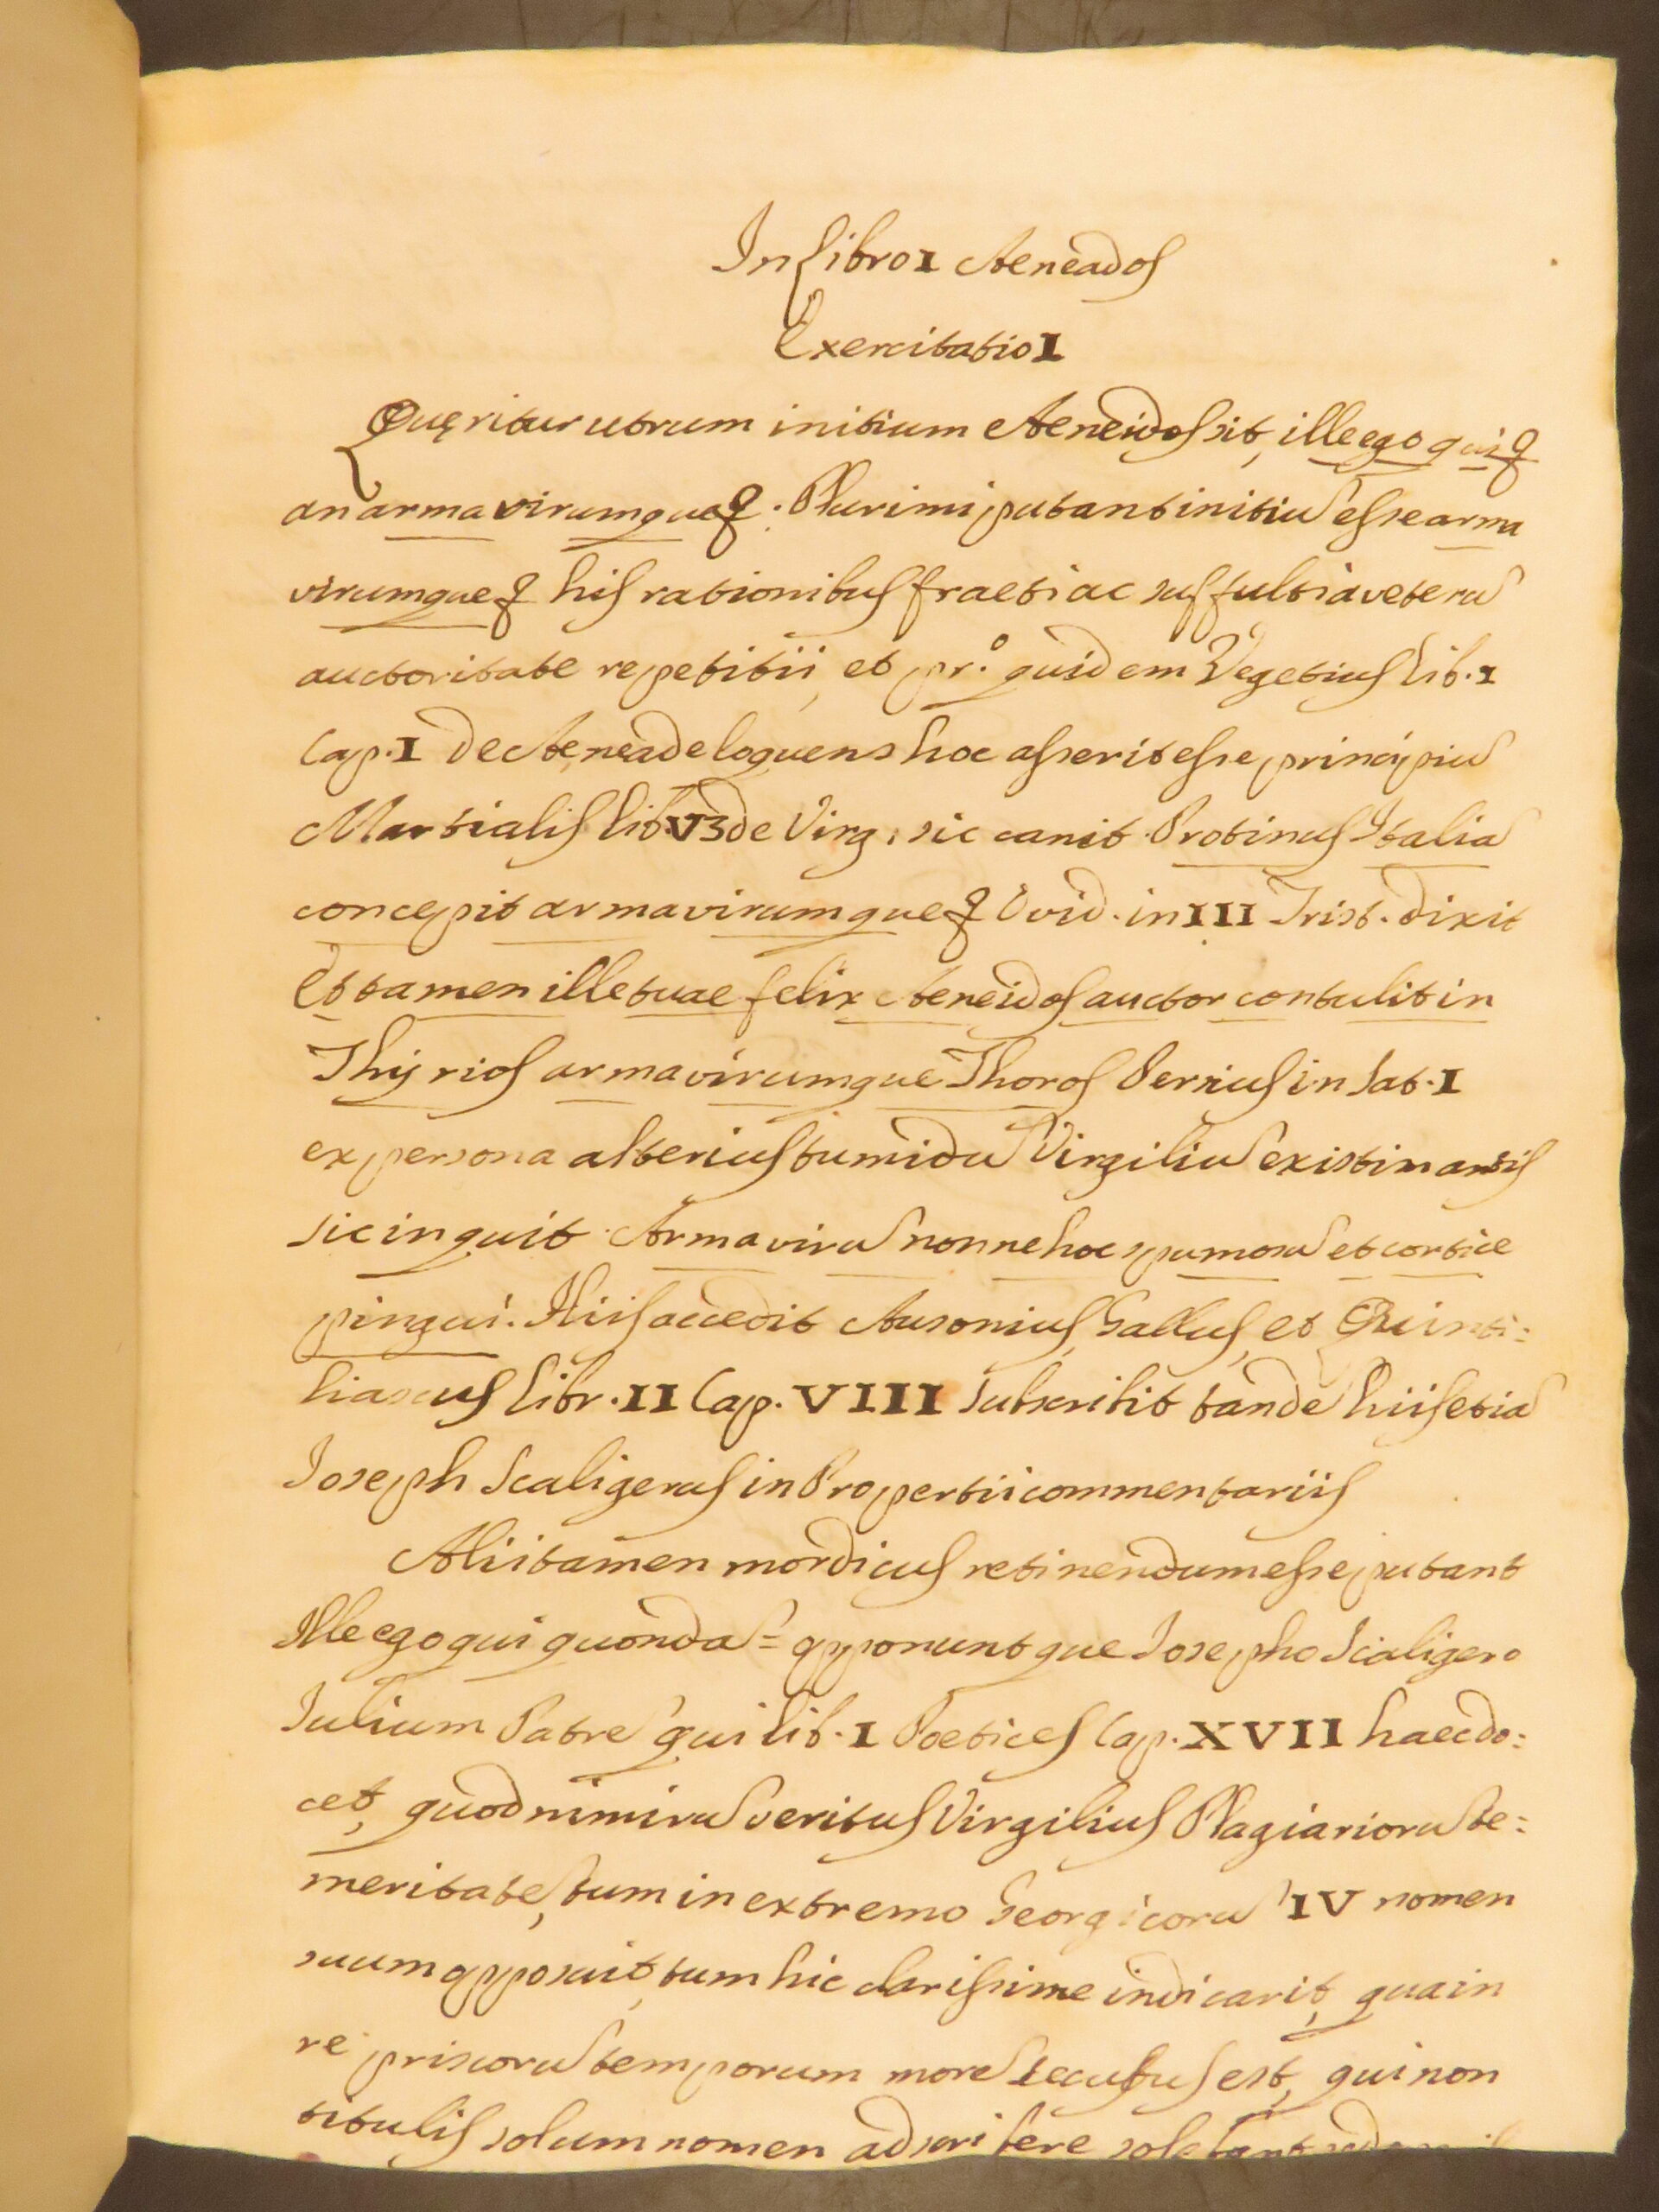 In Libro I Aeneados
Exercitatio I
Quęritur utrum initium Aeneidos sit, ille ego qui &
an arma virumque &. Plurimi putant initiū esse arma
virumque & his rationibus fraeti ac suffulti a veterū
auctoritate repetitii, et pr.º quidem Vegetius lib. I
Cap. I de Aeneade loquens hoc asserit esse principiū
Martialis lib. V3 de Virg. sic canit Protinus Italiā
concepit arma virumque & Ovid. in III Trist. dixit
Et tamen ille tuae felix Aeneidos auctor contulit in
Thyrios arma virumque Thoros Persius in Sat. I
ex persona alterius tumidū Virgiliū existimantis
sic inquit Arma virū nonne hoc spumosū et cortice
pingui. Hiis accedit Ausonius, Gallus, et Quinti:
lianus Libr. II Cap. VIII Subscribit tandē hiis etiā
Joseph Scaligerus in Propertii commentariis
Alii tamen mordicus retinendum esse putant
Ille ego qui quondā = opponuntque Josepho Scaligero
Julium Patrē qui lib. I Poetices Cap. XVII haec do:
cet, quod nimirū veritus Virgilius Plagiariorū te:
meritatē, tum in extremo Georgicorū IV nomen
suum apposuit, tum hic clarissime indicarit, qua in
re priscorū temporum morē secutus est, qui non
titulis solum nomen adscribere solebant